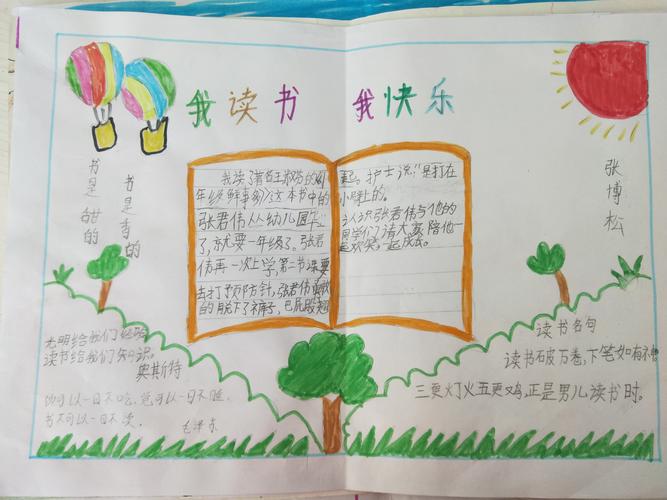 我读书 我快乐
书是甜的
书是香的
张博松
我读了著名王淑芬的《
年级鲜事多》这本书中的
张君伟从幼儿园毕
了,就要一年级了。张君
伟再一次上学,第一节课要
去打预防针,张君伟
的脱下了裤子,把屁股翘
起。护士说:"是打在
小胳上的。
认识张君伟与他的
同学们?请大家陪他
一起欢笑,一起成长。
光明给我们经验
读书给我们知识。
奥斯特
饭可以一日不吃,觉可以一日不睡
书不可以一日不读。
毛泽东
读书名句
读书破万卷,下笔如有神
三更灯火五更鸡,正是男儿读书时。